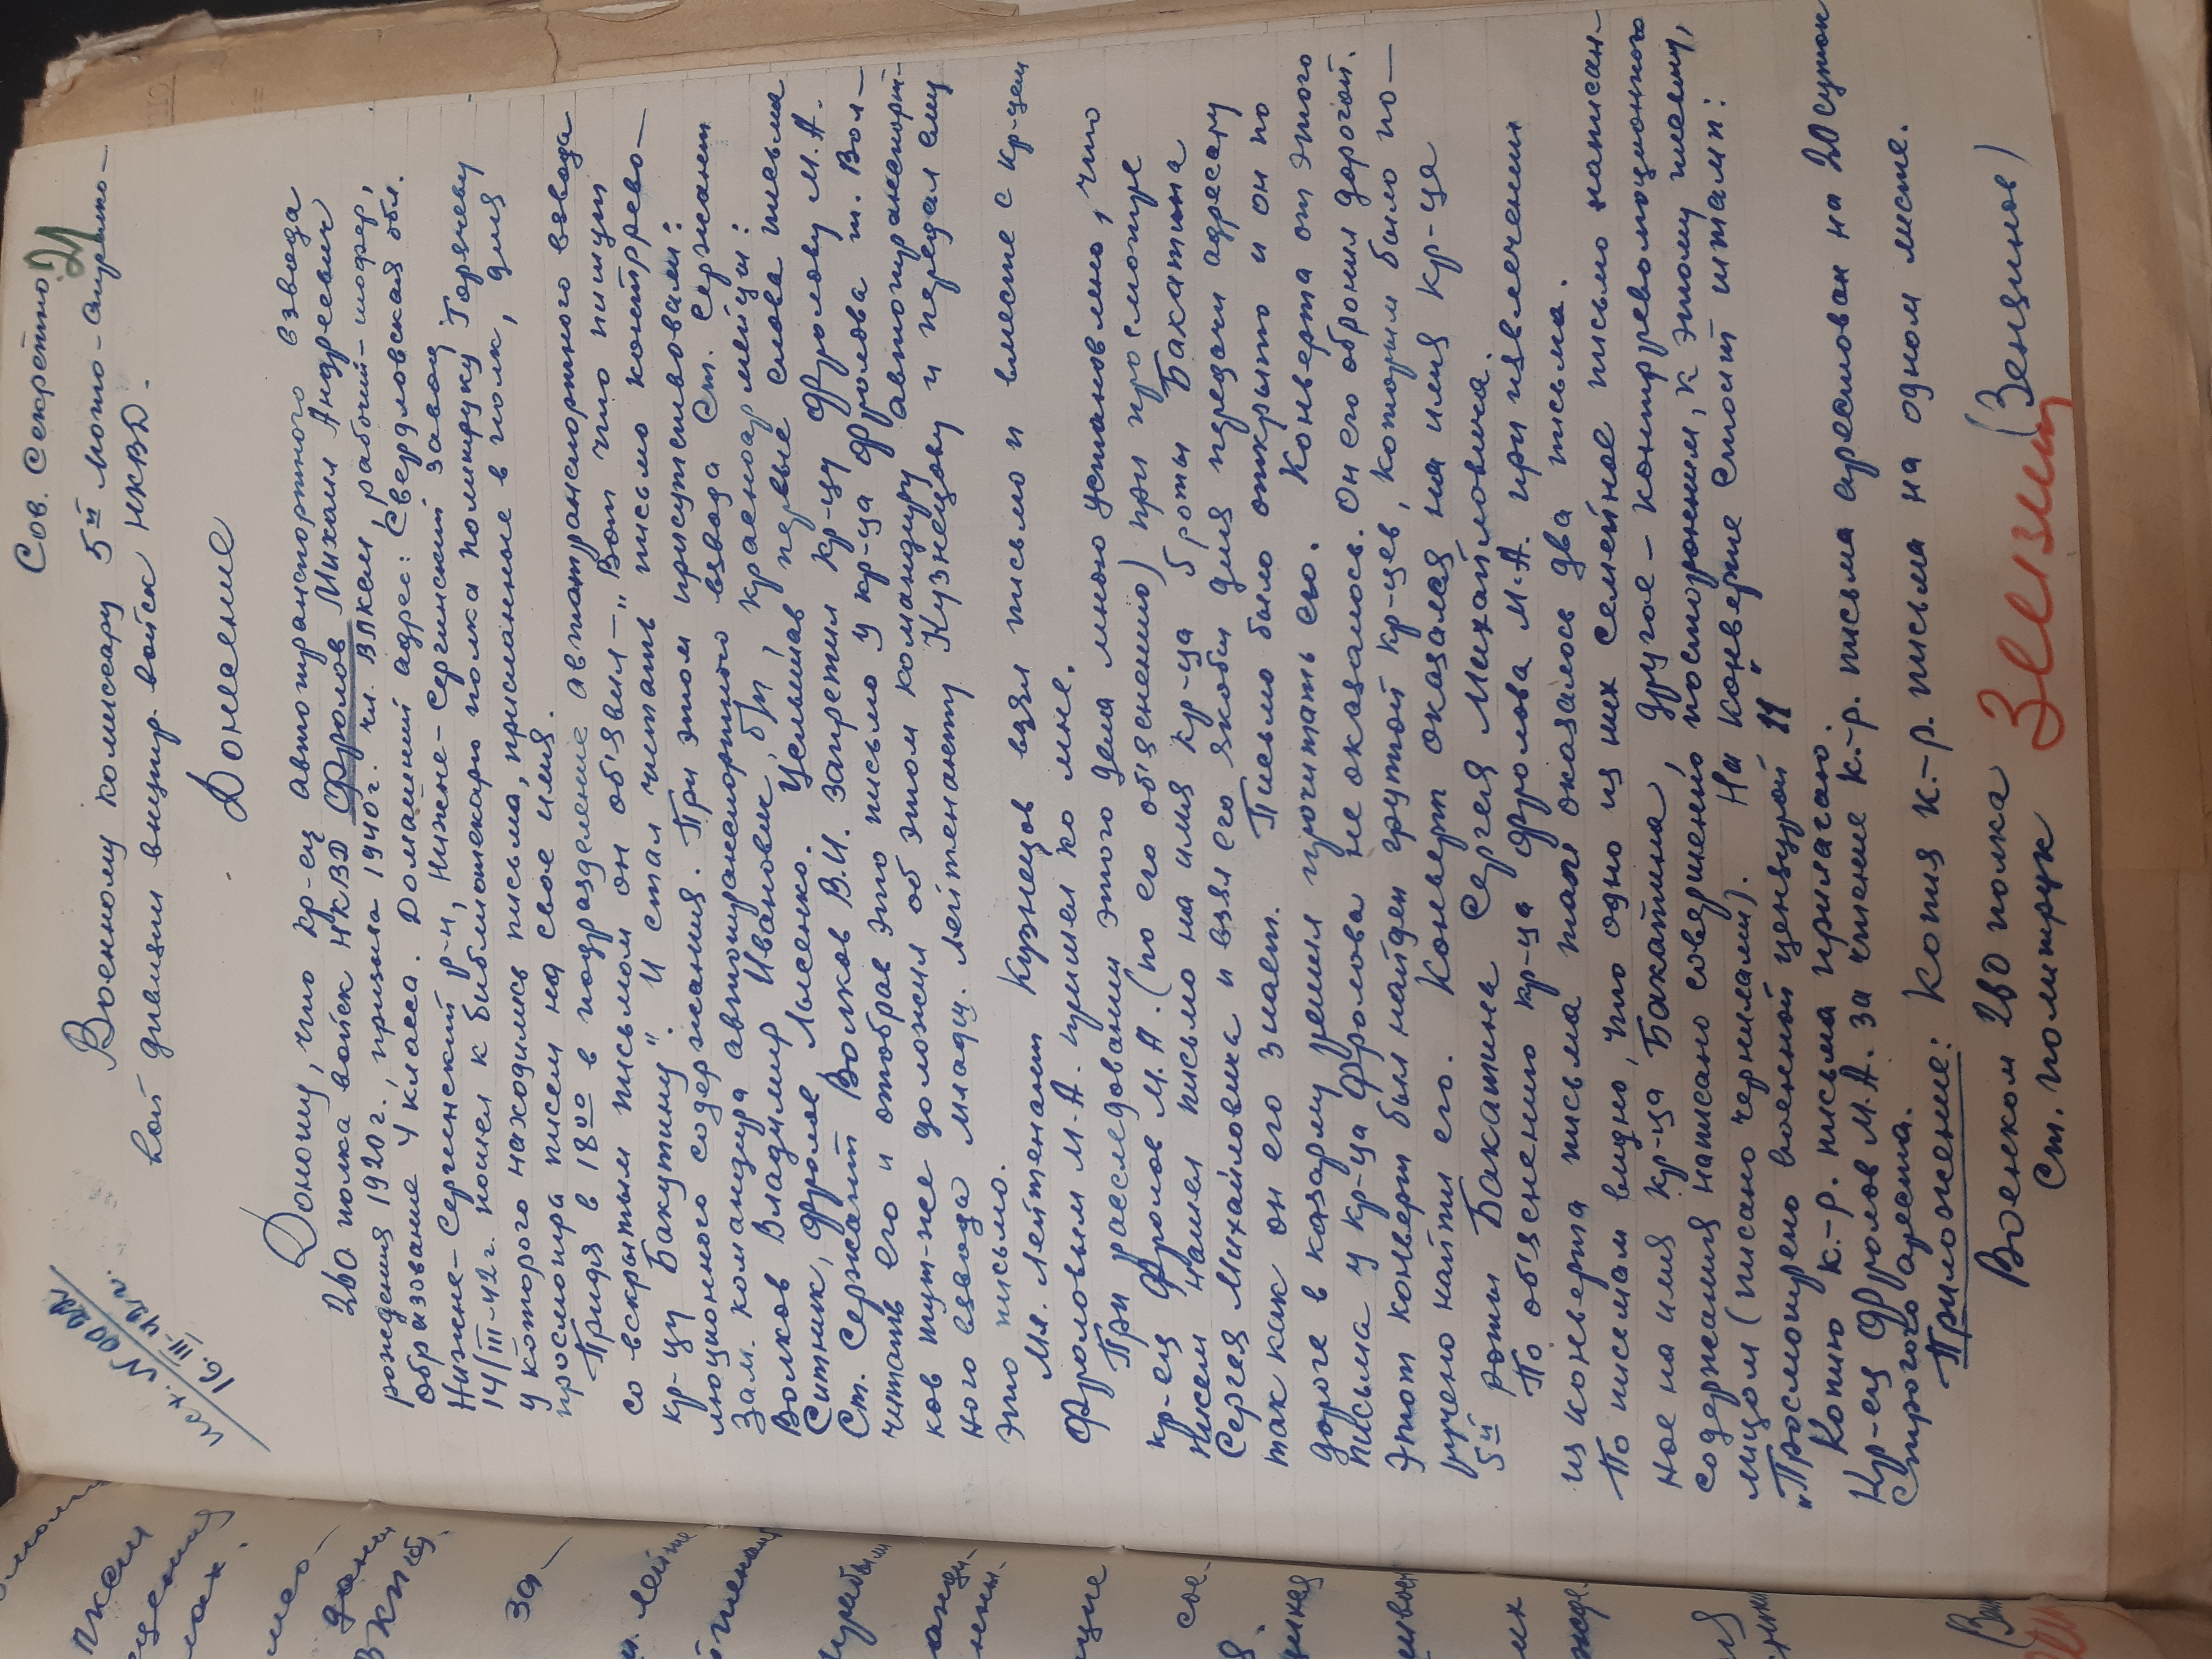 Сов. Секретно
21
исх. № 0022
16.III-42 г.
Военному комиссару 5й мото-стрелко-
вой дивизии внутр. войск НКВД.
Донесение
Доношу, что кр-ец автотранспортного взвода
2во полка войск НКВД Фролов Михаил Андреевич
рождения 1920 г., призыва 1940 г. чл. ВЛКСМ, рабочий-шофер,
образование 4 класса. Домашний адрес: Свердловская обл.
Нижне-Сергинский р-н, Нижне-Сергинский завод
14/III-42 г. пошел к библиотекарю полка политруку Горячеву
у которого находились письма, присланные в полк, для
просмотра писем на свое имя.
Придя в 18⁰⁰ в подразделение автотранспортного взвода
со вскрытым письмом он об'явил-„Вот что пишут
кр-цу Бакутину". И стал читать письмо контррево-
люционного содержания. При этом присутствовали:
Зам. командира автотранспортного взвода Ст. Сержант
Волков Владимир Иванович, б/п, красноармейцы:
Ситник, Фролов, Лысенко. Услышав первые слова письма
Ст. Сержант Волков В.И. запретил кр-цу Фролову М.А.
читать его и отобрав это письмо у кр-ца Фролова т. Вол-
ков тут-же доложил об этом командиру автотранспорт-
ного взвода младш. лейтенанту Кузнецову и передал ему
это письмо.
Мл. лейтенант Кузнецов взял письмо и вместе с кр-цем
Фроловым М.А. пришел ко мне.
При расследовании этого дела мною установлено, что
кр-ец Фролов М.А. (по его об'яснению) при просмотре
писем нашел письмо на имя кр-ца 5 роты Бакатина
Сергея Михайловича и взял его якобы для передачи адресату
так как он его знает. Письмо было открыто и он по
дороге в казарму решил прочитать его. Конверта от этого
письма у кр-ца Фролова не оказалось. Он его обронил дорогой.
Этот конверт был найден группой кр-цев, которым было по-
ручено найти его. Конверт оказался на имя кр-ца
5й роты Бакатина Сергея Михайловича.
По об'яснению кр-ца Фролова М.А. при извлечении
из конверта письма там оказалось два письма.
По письмам видно, что одно из них семейное письмо написан-
ное на имя кр-ца Бакатина, другое-контрреволюционного
содержания написано совершенно посторонним, к этому письму,
лицом (писано чернилами). На конверте стоит штамп:
„Просмотрено военной цензурой 11"
Копию к.-р. письма прилагаю.
Кр-ец Фролов М.А. за чтение к.-р. письма арестован на 20 суток
Строгого ареста.
Приложение: Копия к.-р. письма на одном листе.
Военком 2во полка
Ст. политрук (Зенцинов)